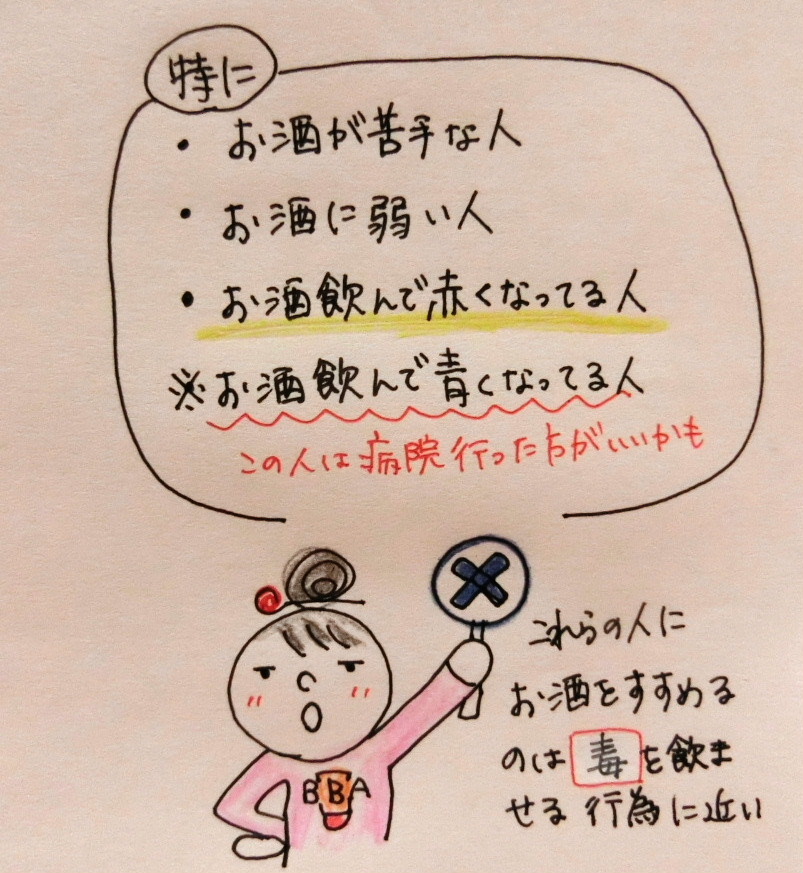 特に
・お酒が苦手な人
・お酒に弱い人
・お酒飲んで赤くなってる人
※お酒飲んで青くなってる人
この人は病院行った方がいいかも
これらの人に
お酒をすすめる
のは毒を飲ま
せる行為に近い
BBA